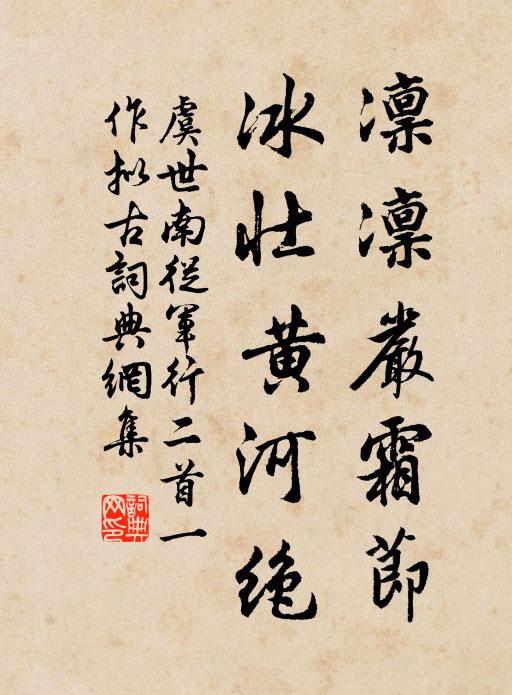 凜凜嚴霜節
冰壯黄河絶
虞世南從軍行二首一
作拟古詞典網集
詞典网印